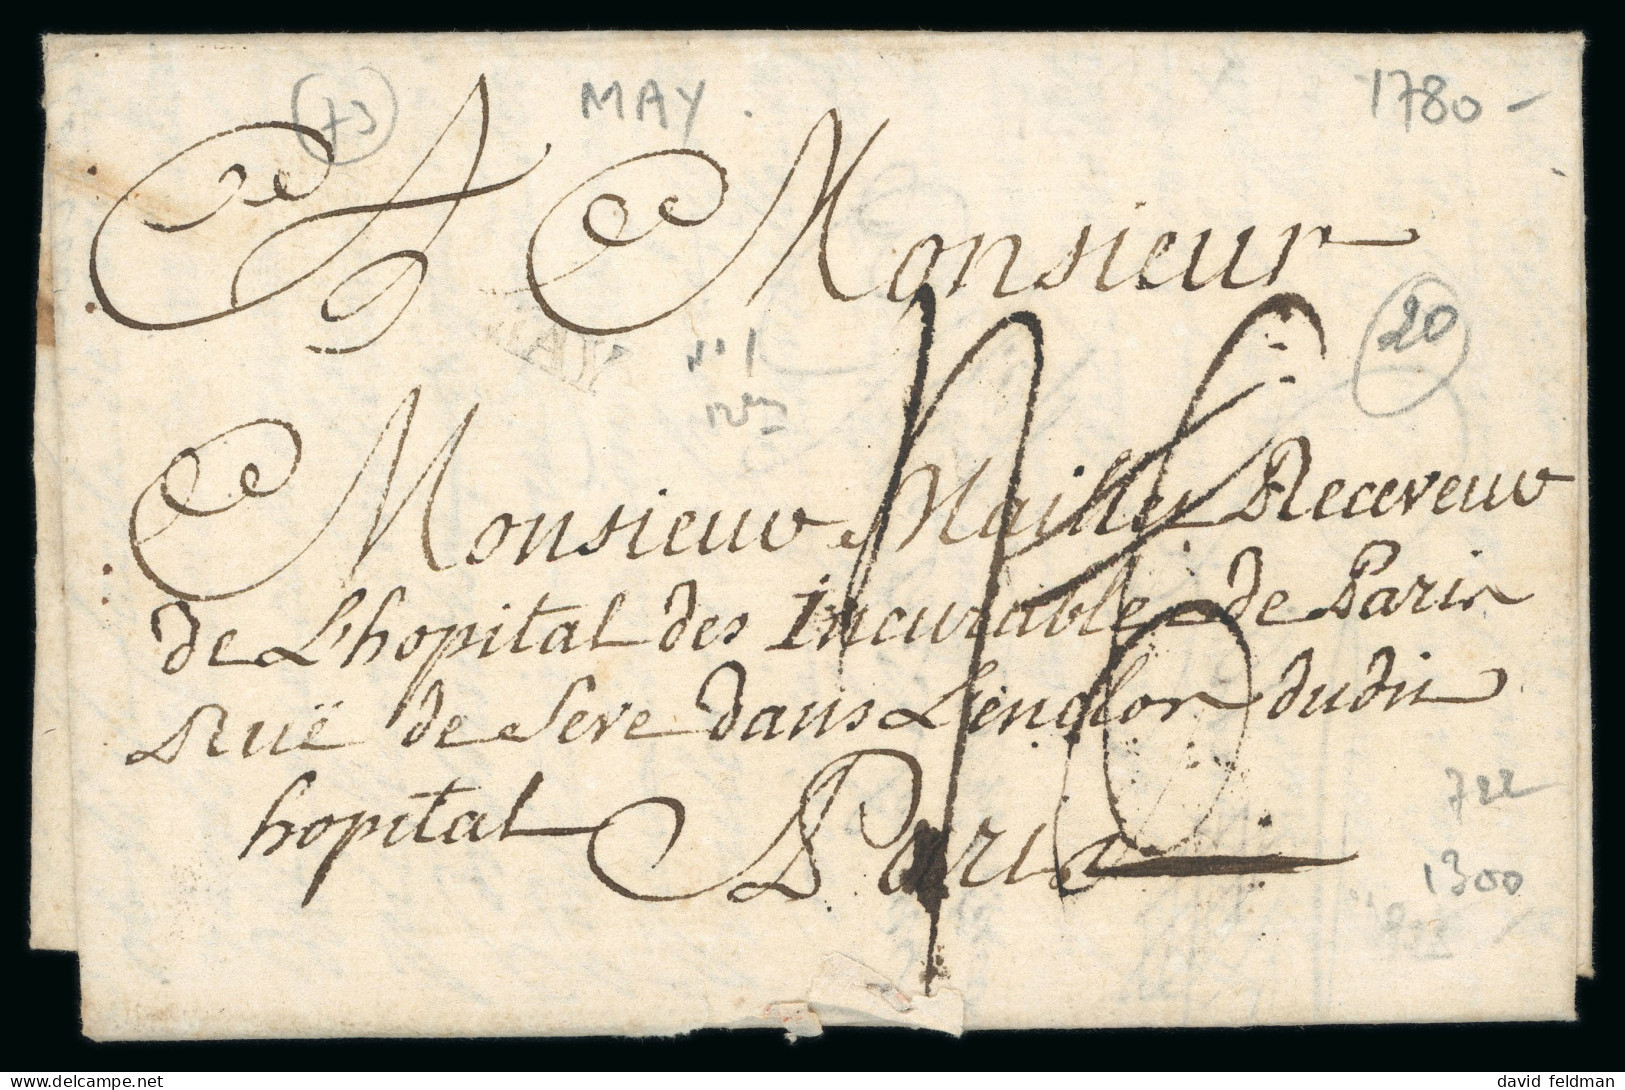 73 MAY. 1780 -
A Monsieur
MAY n° 1 20
Monsieur Mailler Receveur
de L'hopital des Incurable de Paris
Ruë de Seve dans L'enclos dudit
hopital Paris
722
1300
delcampe.net
david feldman